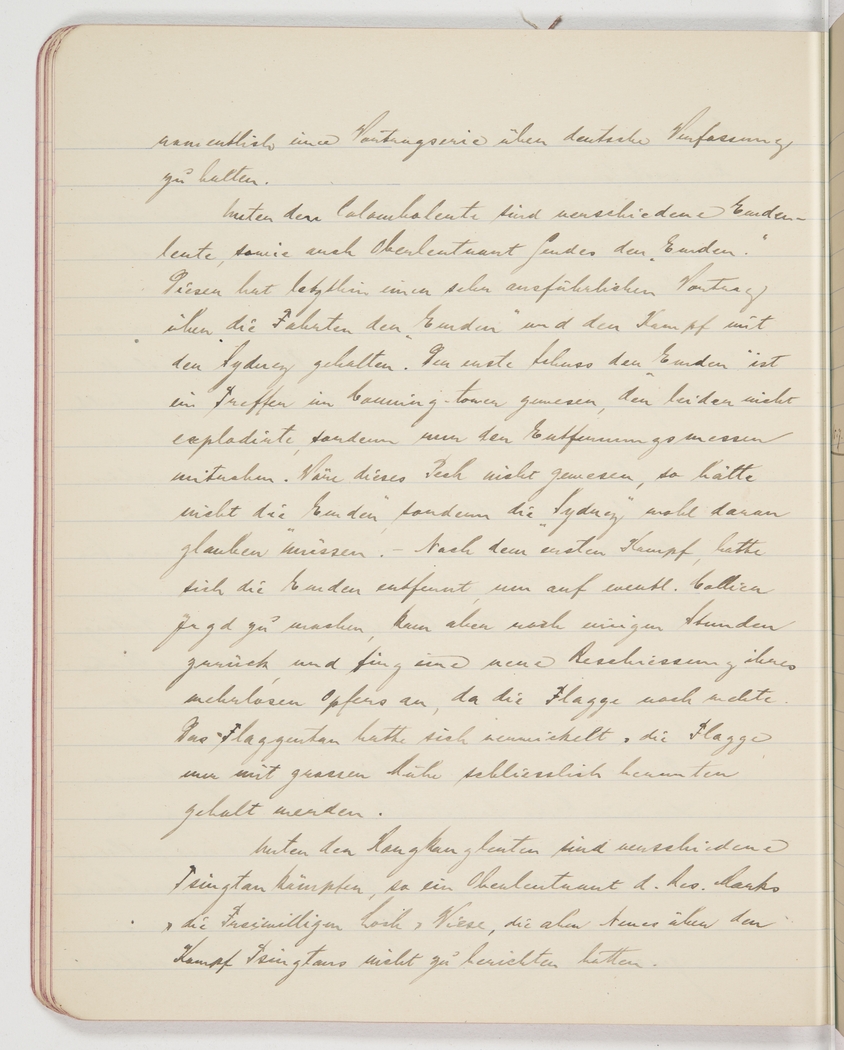 namentlich eine Vortragserie über deutsche Verfassung
zu halten.
Unter den Colomboleute sind verschiedene Emden-
leute, sowie auch Oberleutnant Gendes der „Emden."
Dieser hat letzthin einen sehr ausführlichen Vortrag
über die Fahrten der „Emden" und den Kampf mit
der „Sydney" gehalten. Der erste Schuss der „Emden" ist
ein Treffer im Conning-tower gewesen, der leider nicht
explodirte, sondern nur den Entfernungsmesser
mitnahm. Wäre dieses Pech nicht gewesen, so hätte
nicht die „Emden", sondern die „Sydney" wohl daran
glauben müssen. – Nach dem ersten Kampf, hatte
sich die Emden entfernt, um auf eventl. Collier
Jagd zu machen, kam aber nach einigen Stunden
zurück, und fing eine neue Beschiessung ihres
wehrlosen Opfers an, da die Flagge noch wehte.
Das Flaggentau hatte sich verwickelt & die Flagge
nur mit grosser Mühe schliesslich herunter
geholt werden.
Unter den Hongkongleuten sind verschiedene
Tsingtaukämpfer, so ein Oberleutnant d. Res. Marks
& die Freiwilligen & Wiese, die aber Neues über den
Kampf Tsingtaus nicht zu berichten hatten.